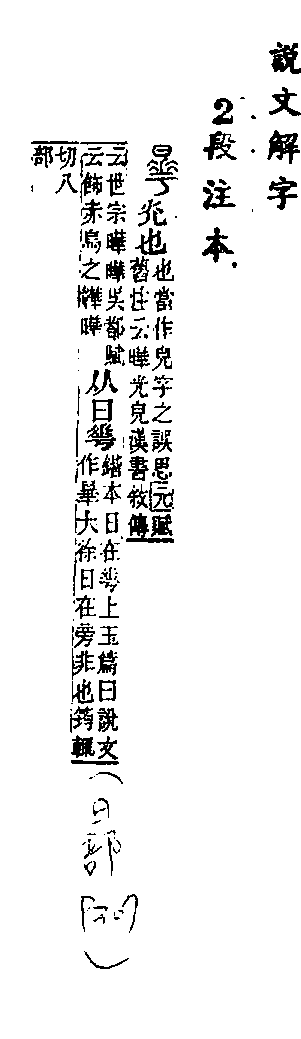 說文解字
2段注本
光也
也當作皃字之誤思元賦
舊注云曄光皃漢書敘傳
云世宗曄曄吳都賦
云飾赤烏之韡曄
从日𠌶
鍇本日在𠌶上玉篇曰說文
作曅大徐日在旁非也筠輒
切八
部
(日部